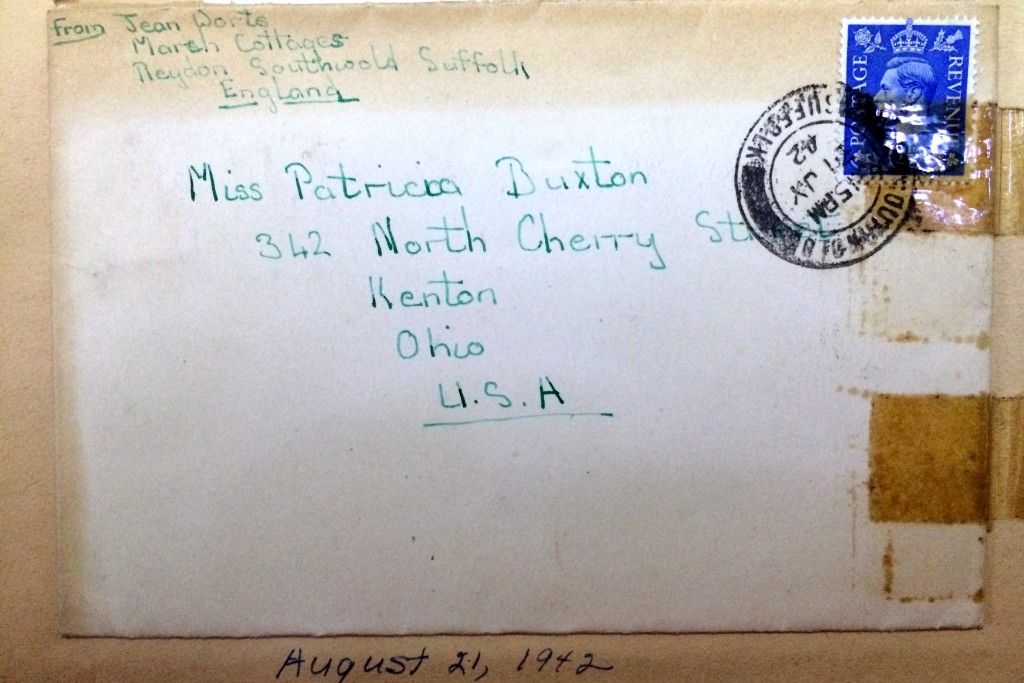 From Jean Worts
Marsh Cottages
Reydon Southwold Suffolk
England
POSTAGE REVENUE
Miss Patricia Buxton
342 North Cherry Street
Kenton
Ohio
U.S.A
SOUTHWOLD SUFFOLK
45PM
JY
42
August 21, 1942